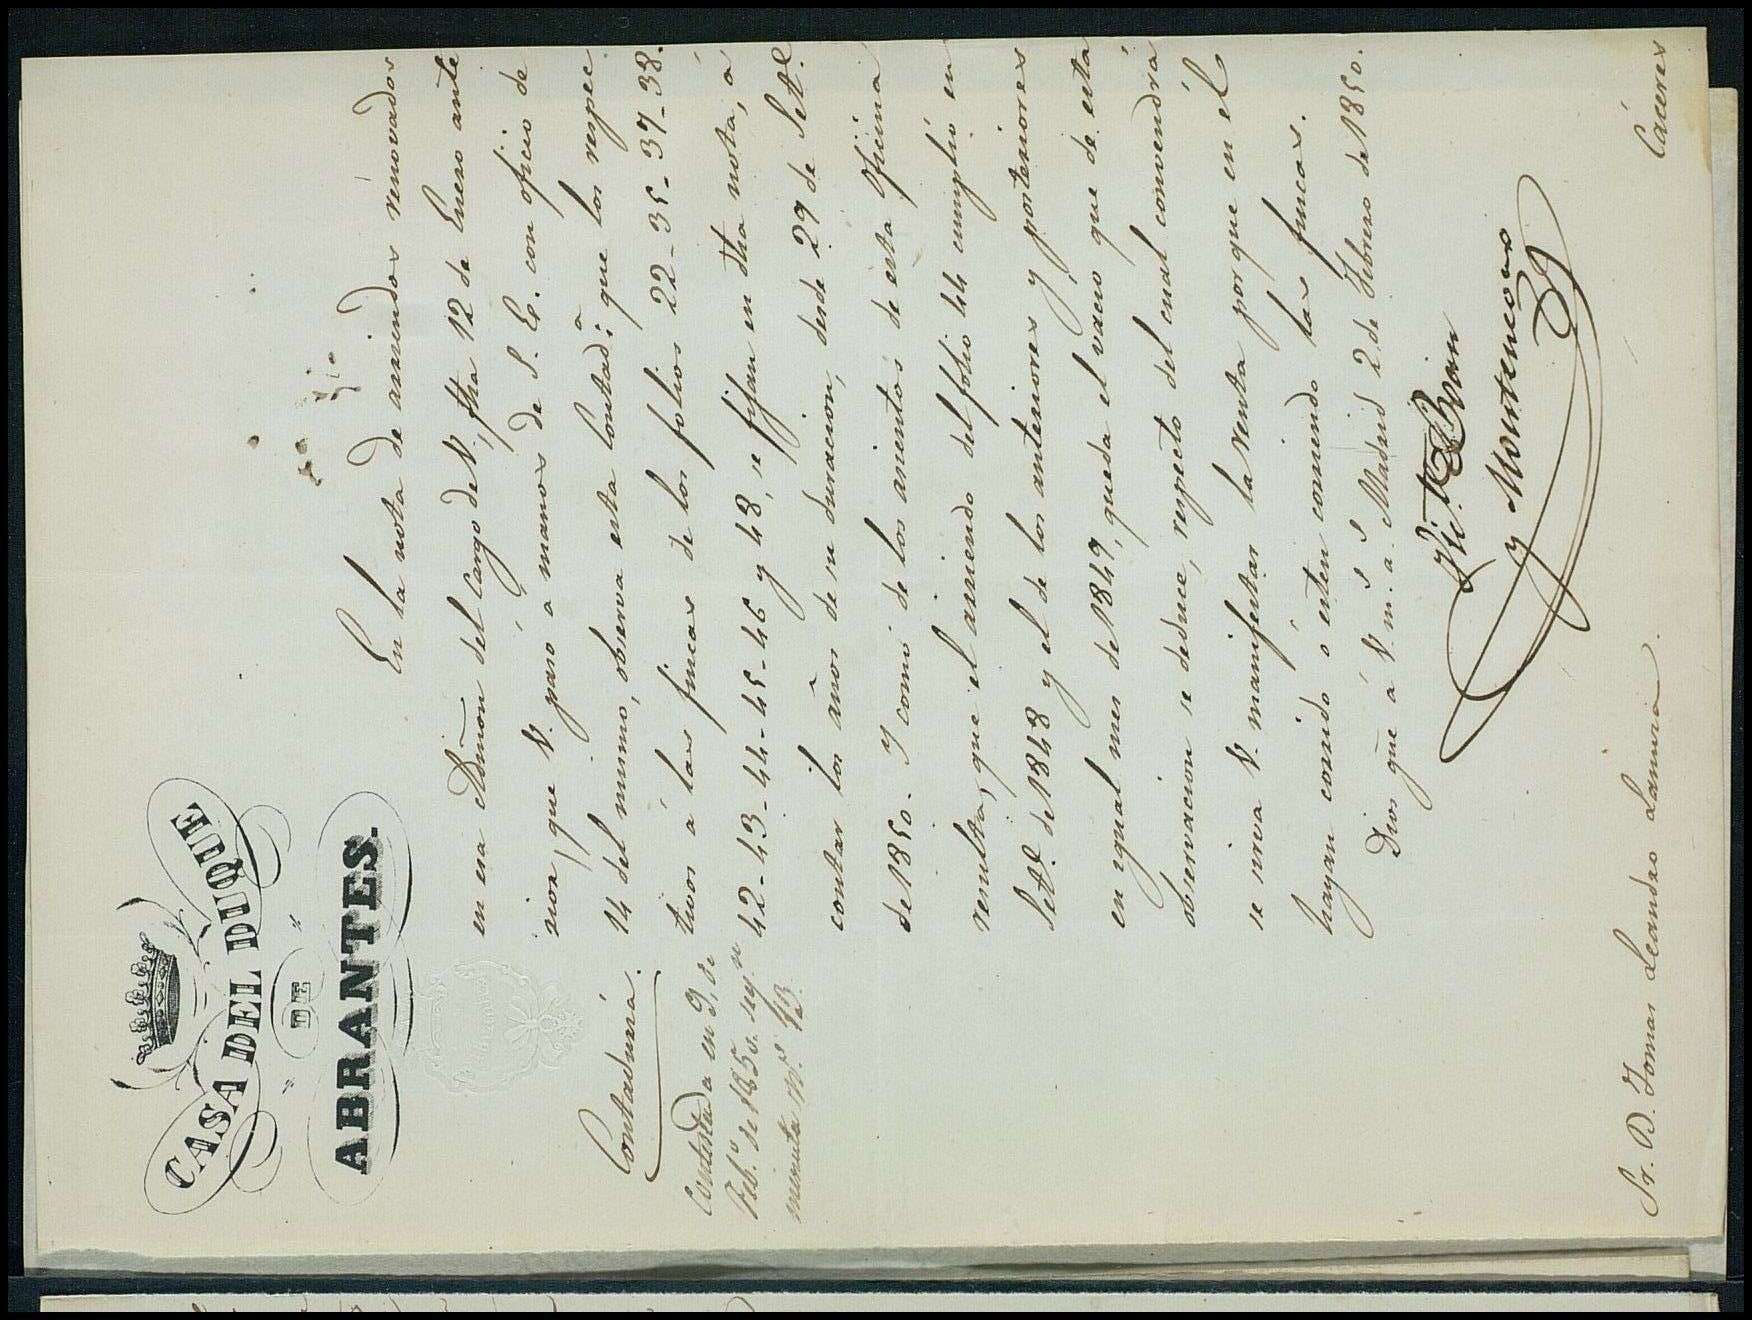 CASA DEL DUQUE
" DE "
ABRANTES.
Contaduria.
Contestada en 9, de
Feb.o de 1850. seg.n
minuta N.o 13.
En la nota de arriendos renovados
en esa Admon del Cargo de V., fha 12 de Enero ante
rior, que V. paso a manos de S. E. con oficio de
14 del mismo, observa esta Contad.a que los respec
tivos a las fincas de los folios 22-35-37-38.
42-43-44-45-46 y 48, se fijan en dha nota, á
contar los años de su duracion, desde 29 de Set.e
de 1850. Y como de los asientos de esta Oficina
resulta, que el arriendo del folio 44 cumplió en
Set.e de 1848 y el de los anteriores y posteriores
en igual mes de 1849, queda el vacio que de esta
observacion se deduce, respecto del cual convendrá
se sirva V. manifestar la renta porque en él
hayan corrido ó esten corriendo las fincas.
Dios gue á V. m.s a.s Madrid 2 de Febrero de 1850.
y Montenegro
Sr. D. Tomas Leandro Lamuria.
Cáceres